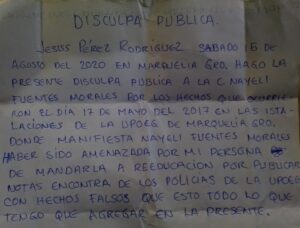 DISCULPA PUBLICA.
JESUS PÉREZ RODRIGUEZ SABADO 15 DE
AGOSTO DEL 2020 EN MARQUELIA GRO. HAGO LA
PRESENTE DISCULPA PUBLICA A LA C. NAYELI
FUENTES MORALES POR LOS HECHOS QUE OCURRIE
RON EL DÍA 17 DE MAYO DEL 2017 EN LAS ISTA-
LACIONES DE LA UPOEG DE MARQUELIA GRO.
DONDE MANIFIESTA NAYELI FUENTES MORALES
HABER SIDO AMENAZADA POR MI PERSONA
DE MANDARLA A REEDUCACION POR PUBLICAR
NOTAS ENCONTRA DE LOS POLICIAS DE LA UPOEG
CON HECHOS FALSOS QUE ESTO TODO LO QUE
TENGO QUE AGREGAR EN LA PRESENTE.